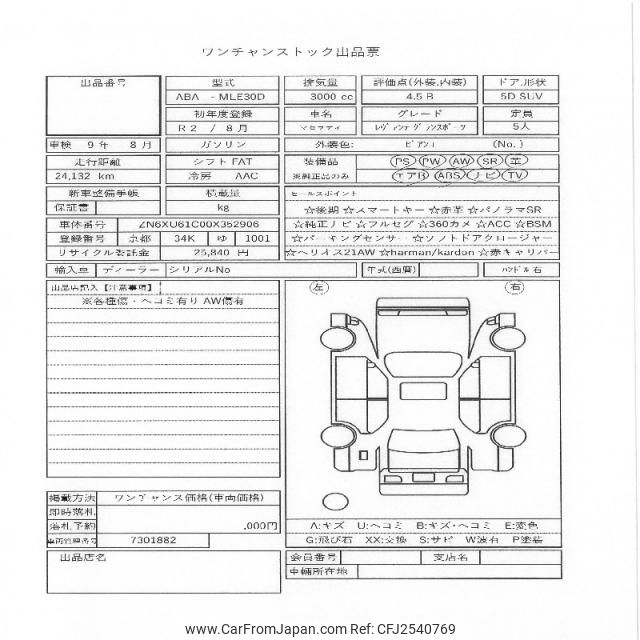 ワンチャンストック出品票
出品番号
型式
ABA - MLE30D
初年度登録
R2 / 8月
排気量
3000 cc
評価点(外装,内装)
4.5 B
ドア,形状
5D SUV
車名
マセラティ
グレード
レヴァンテ グランスポーツ
定員
5人
車検 9年 8月
ガソリン
外装色: ビアンコ (No. )
走行距離
24,132 km
シフト FAT
冷房 AAC
装備品
※純正品のみ
PS PW AW SR 革
エアB ABS ナビ TV
新車整備手帳
保証書
積載量
kg
セールスポイント
☆後期 ☆スマートキー ☆赤革 ☆パノラマSR
☆純正ナビ ☆フルセグ ☆360カメ ☆ACC ☆BSM
☆パーキングセンサー ☆ソフトドアクロージャー
☆ヘリオス21AW ☆harman/kardon ☆赤キャリパー
車体番号 ZN6XU61C00X352906
登録番号 京都 34K ゆ 1001
リサイクル委託金 25,840 円
輸入車 ディーラー シリアルNo
年式(西暦)
ハンドル 右
出品店記入【注意事項】
※各種傷・ヘコミ有り AW傷有
左 右
掲載方法 ワンチャンス価格(車両価格)
即時落札
落札予約 ,000円
車両管理番号 7301882
A:キズ U:ヘコミ B:キズ・ヘコミ E:変色
G:飛び石 XX:交換 S:サビ W波有 P塗装
出品店名
会員番号 支店名
車輌所在地
www.CarFromJapan.com Ref: CFJ2540769